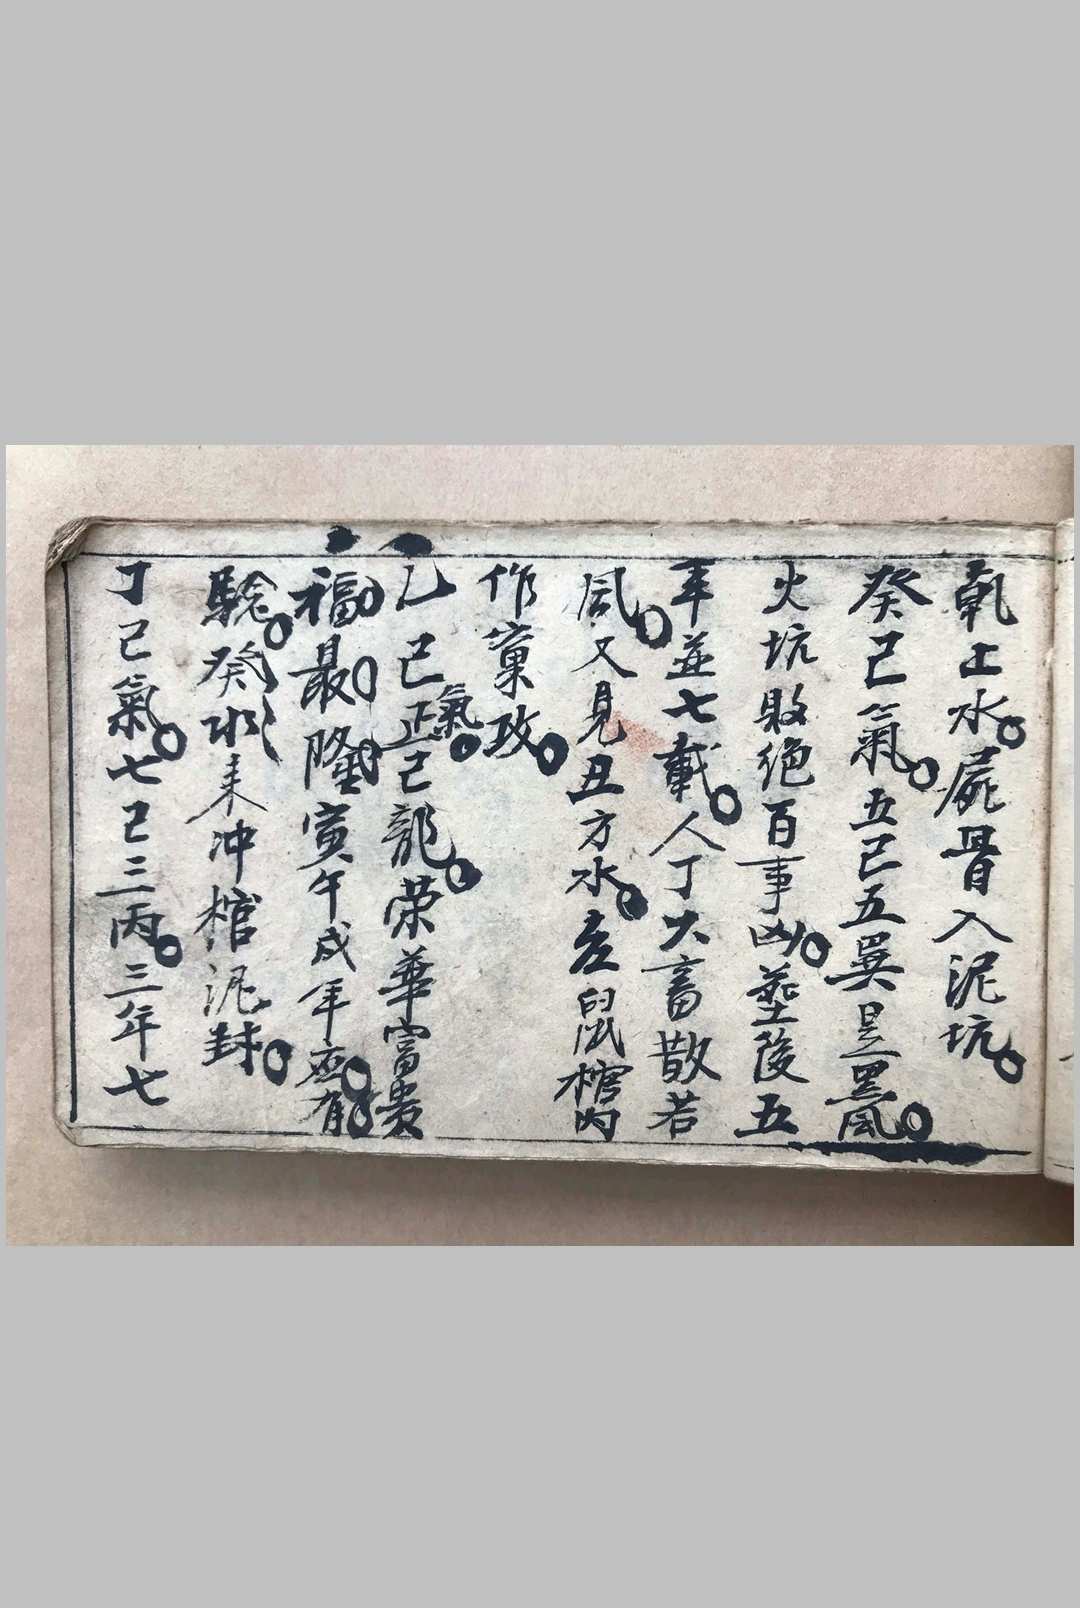 乾上水。屍骨入泥坑。
癸己氣。五己五巽是黑風。
火坑敗絕百事凶。塟後五
年並七載。人丁大畜散若
風。又見丑方水。亥鼠棺內
作窠攻。
乙己氣。正己龍。榮華富貴
福最隆。寅午戌年西有
驗。癸水來冲棺泥封。
丁己氣。七己三丙。三年七